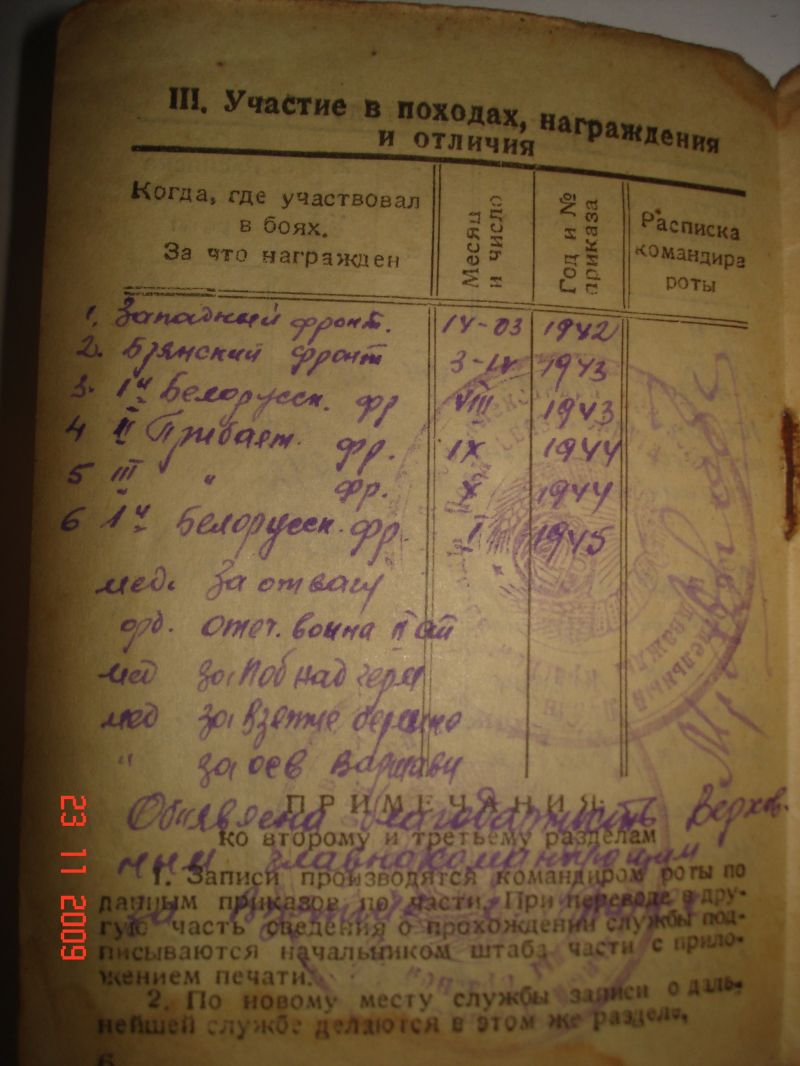 III. Участие в походах, награждения
и отличия
Когда, где участвовал
в боях.
За что награжден
Месяц
и число
Год и №
приказа
Расписка
командира
роты
1. Западный фронт. IV-03 1942
2. Брянский фронт 3-IV 1943
3. 1й Белорусск. фр VIII 1943
4 II Прибалт. фр. IX 1944
5 III " фр. X 1944
6 1й Белорусск. фр. I 1945
мед. За отвагу
орд. отеч. война II ст
мед за Поб над герм
мед за взятие берлина
" за осв варшавы
ПРИМЕЧАНИЯ
Объявлена благодарность Верхов.
ко второму и третьему разделам
ным главнокомандующим
1. Записи производятся командиром роты по
данным приказов по части. При переводе в дру-
за
гую часть сведения о прохождении службы под-
писываются начальником штаба части с прило-
жением печати.
2. По новому месту службы записи о даль-
нейшей службе делаются в этом же разделе.
6
23 11 2009